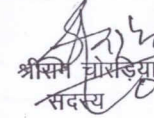 श्रीसेन चोरड़िया
सदस्य